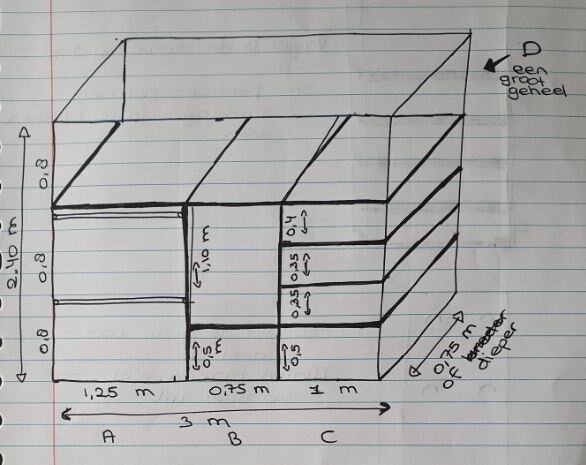 D
een
groot
geheel
2.40 m
0,8
0,8
0,8
1,10 m
0,4
0.35
0.35
0,5
m
0,5
1,25 m
0,75 m
1 m
3 m
A
B
C
0,75 m
of
dieper